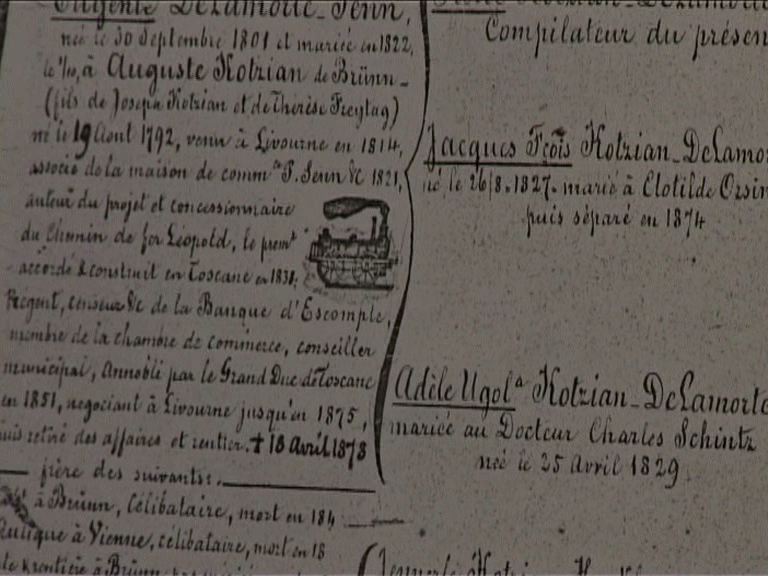 Eugénie DeLamorte-Senn,
née le 30 Septembre 1801 et mariée en 1822,
à Auguste Kotzian de Brünn_
(fils de Joseph Kotzian et de Thérèse Freytag)
né le 19 Aout 1792, venu à Livourne en 1814,
associé de la maison de commce P. Senn &C 1821,
auteur du projet et concessionnaire
du Chemin de fer Léopold, le premr
accordé & construit en Toscane en 1838,
Régent, censeur &c de la Banque d'Escompte,
membre de la chambre de commerce, conseiller
municipal, Annobli par le Grand Duc de Toscane
en 1851, negociant à Livourne jusqu'en 1875,
puis retiré des affaires et rentier. † 18 Avril 1878
frère des suivants:
à Brünn, Célibataire, mort en 184
à Vienne, célibataire, mort en 18
& rentière à Brünn
Compilateur du présen
Jacques Fçois Kotzian_DeLamor
né le 26/8.1827. marié à Clotilde Orsin
puis séparé en 1874
Adèle Ugola Kotzian_DeLamorte
mariée au Docteur Charles Schintz
née le 25 Avril 1829